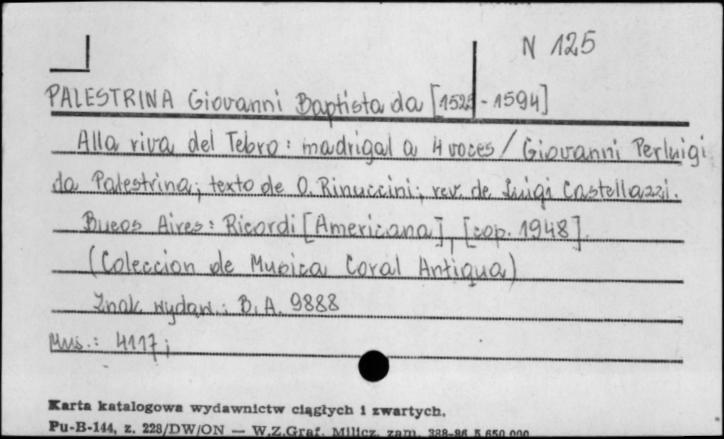 N 125
PALESTRINA Giovanni Baptista da [1525-1594]
Alla riva del Tebro: madrigal a 4 voces / Giovanni Perluigi
da Palestrina; texto de O. Rinuccini; rev. de Luigi Castellazzi.
Bueos Aires: Ricordi [Americana], [cop. 1948].
(Coleccion de Musica Coral Antiqua)
Znak wydaw.: B.A. 9888
Mus.: 4117;
Karta katalogowa wydawnictw ciągłych i zwartych.
Pu-B-144, z. 228/DW/ON — W.Z.Graf. Milicz, zam. 388-86 5.650.000